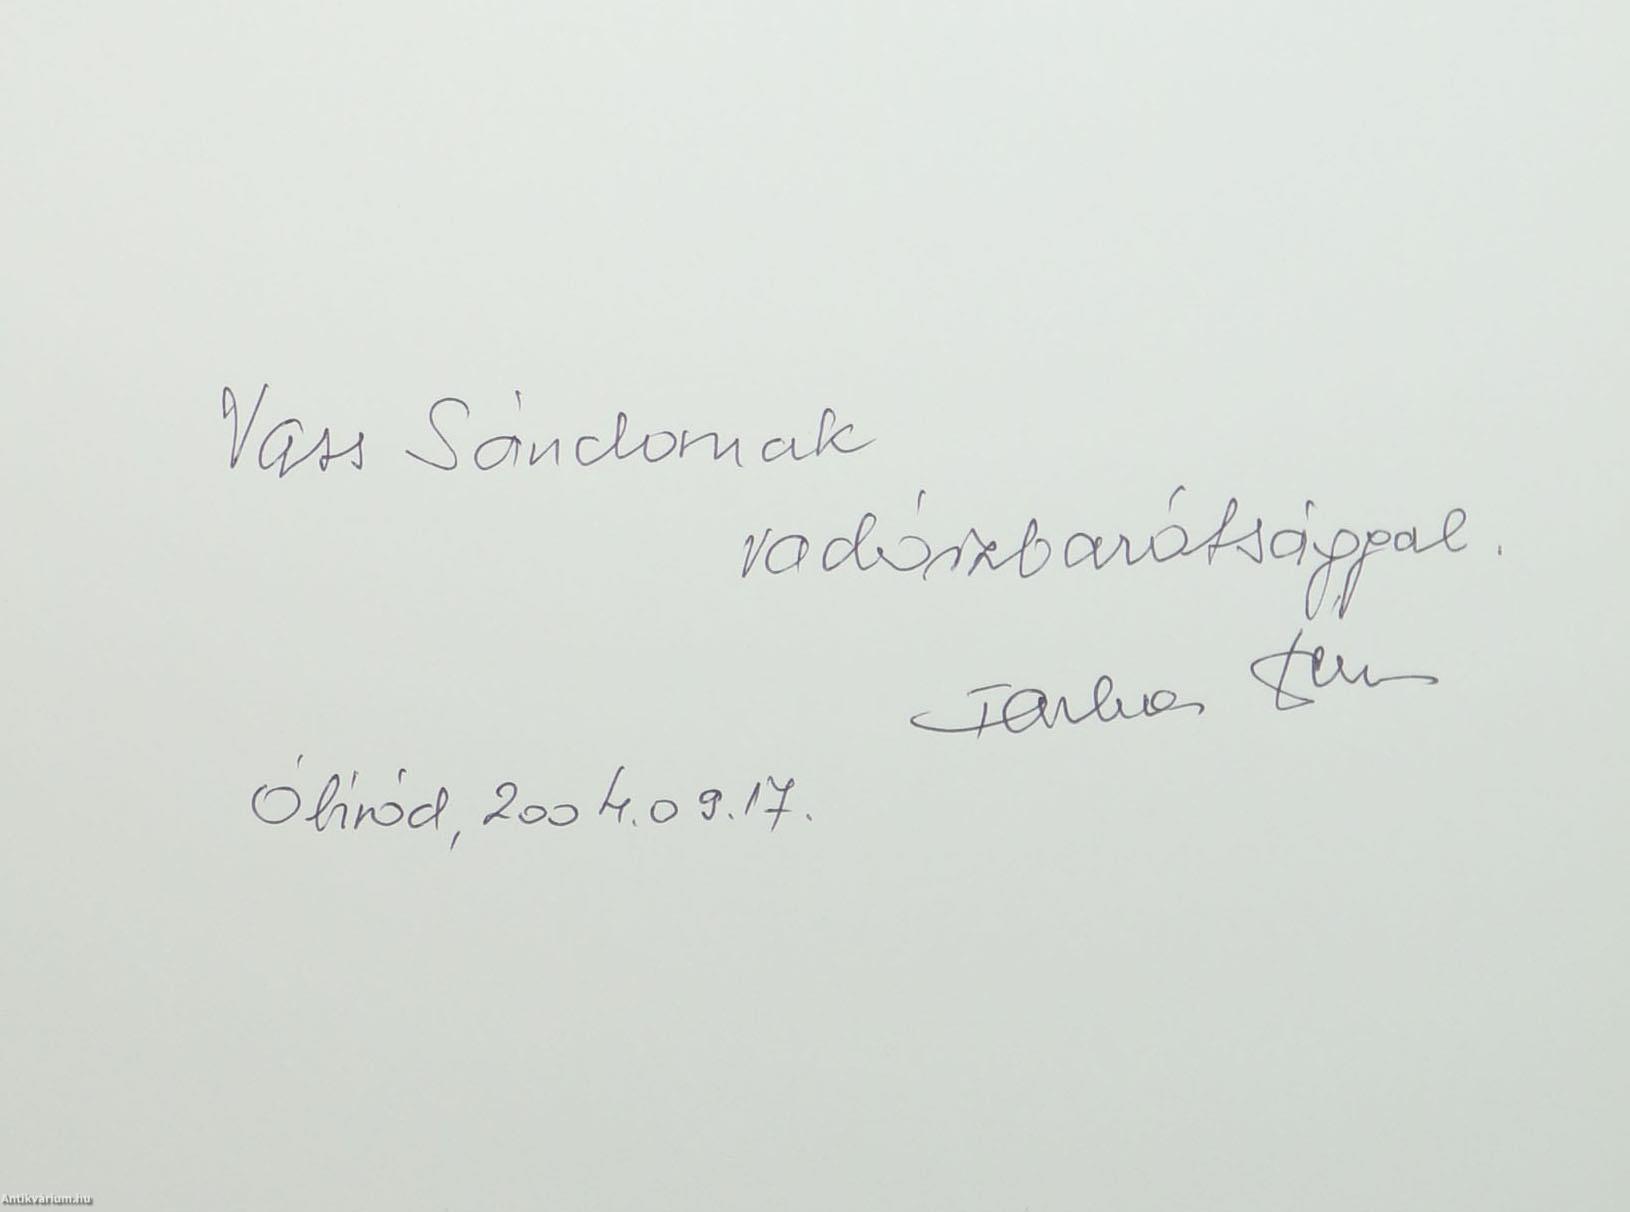 Vass Sándornak
vadászbarátsággal.
Farkas
2004.09.17.
Antikvárium.hu